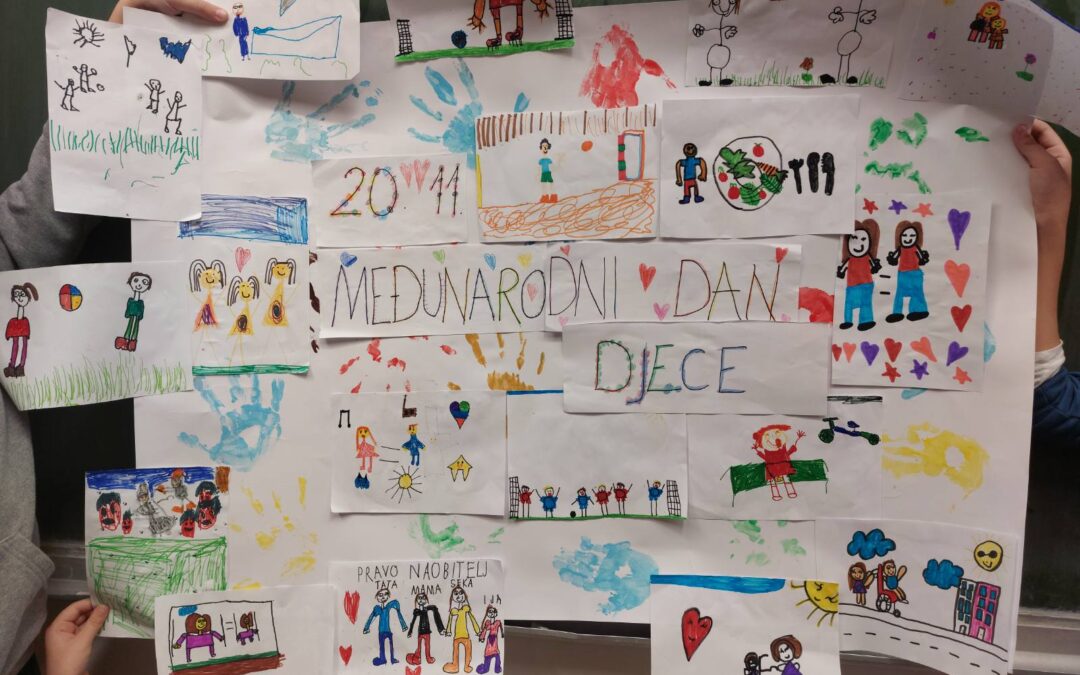 20. 11.
MEĐUNARODNI DAN
DJECE
PRAVO NAOBITELJ
TATA MAMA SEKA
IDA